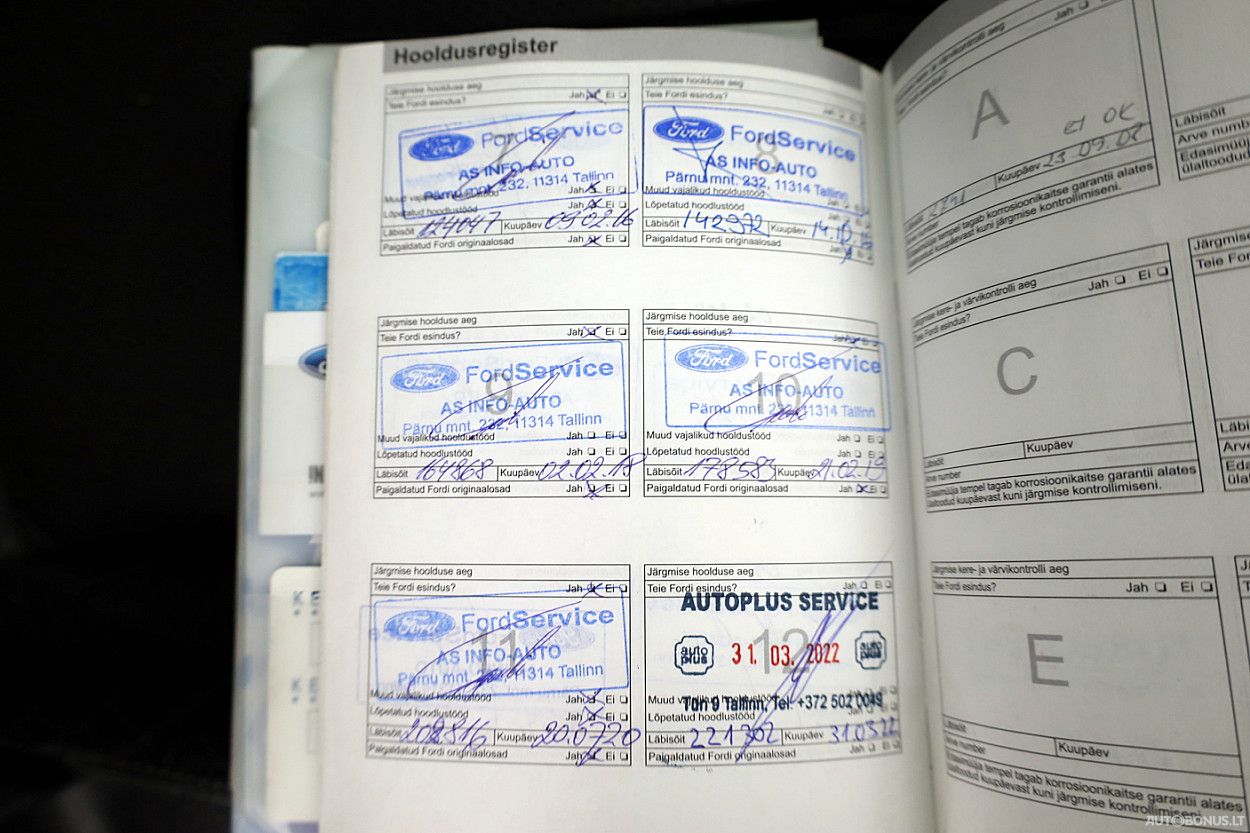 Hooldusregister
Järgmise hoolduse aeg
Teie Fordi esindus? Jah Ei
Ford FordService
AS INFO-AUTO
Pärnu mnt. 232, 11314 Tallinn
Muud vajalikud hooldustööd Jah Ei
Lõpetatud hoodlustööd Jah Ei
Läbisõit 124047 Kuupäev 09.02.16
Paigaldatud Fordi originaalosad Jah Ei
Järgmise hoolduse aeg
Teie Fordi esindus?
8
Ford FordService
AS INFO-AUTO
Pärnu mnt. 232, 11314 Tallinn
Muud vajalikud hooldustööd
Lõpetatud hoodlustööd
Läbisõit 142972 Kuupäev
Paigaldatud Fordi originaalosad
Järgmise hoolduse aeg
Teie Fordi esindus? Jah Ei
9
Ford FordService
AS INFO-AUTO
Pärnu mnt. 232, 11314 Tallinn
Muud vajalikud hooldustööd Jah Ei
Lõpetatud hoodlustööd Jah Ei
Läbisõit 164868 Kuupäev 02.02.18
Paigaldatud Fordi originaalosad Jah Ei
Järgmise hoolduse aeg
Teie Fordi esindus?
10
Ford FordService
AS INFO-AUTO
Pärnu mnt. 232, 11314 Tallinn
Muud vajalikud hooldustööd Jah Ei
Lõpetatud hoodlustööd Jah Ei
Läbisõit 178583 Kuupäev 21.02.19
Paigaldatud Fordi originaalosad Jah Ei
Järgmise hoolduse aeg
Teie Fordi esindus? Jah Ei
11
Ford FordService
AS INFO-AUTO
Pärnu mnt. 232, 11314 Tallinn
Muud vajalikud hooldustööd Jah Ei
Lõpetatud hoodlustööd Jah Ei
Läbisõit 202816 Kuupäev 20.07.20
Paigaldatud Fordi originaalosad Jah Ei
Järgmise hoolduse aeg
Teie Fordi esindus? Jah Ei
AUTOPLUS SERVICE
12
auto plus 31. 03. 2022 auto plus
Muud vajalikud hooldustööd
Türi 9 Tallinn, Tel. +372 502 0049
Lõpetatud hoodlustööd
Läbisõit 221302 Kuupäev 31.03.22
Paigaldatud Fordi originaalosad Jah Ei
Jah Ei
A
ei OK
Kuupäev 23.09.08
tempel tagab korrosioonikaitse garantii alates
kuupäevast kuni järgmise kontrollimiseni.
Järgmise kere- ja värvikontrolli aeg
Teie Fordi esindus? Jah Ei
C
Läbisõit Kuupäev
Arve number
Edasimüüja tempel tagab korrosioonikaitse garantii alates
ülaltoodud kuupäevast kuni järgmise kontrollimiseni.
Järgmise kere- ja värvikontrolli aeg
Teie Fordi esindus? Jah Ei
E
Läbisõit Kuupäev
Arve number
Edasimüüja tempel tagab korrosioonikaitse garantii alates
ülaltoodud kuupäevast kuni järgmise kontrollimiseni.
Läbisõit
Arve numb
Edasimüüj
ülaltoodud
Järgmise
Teie For
Läbi
Arve
Eda
ülal
AUTOBONUS.LT